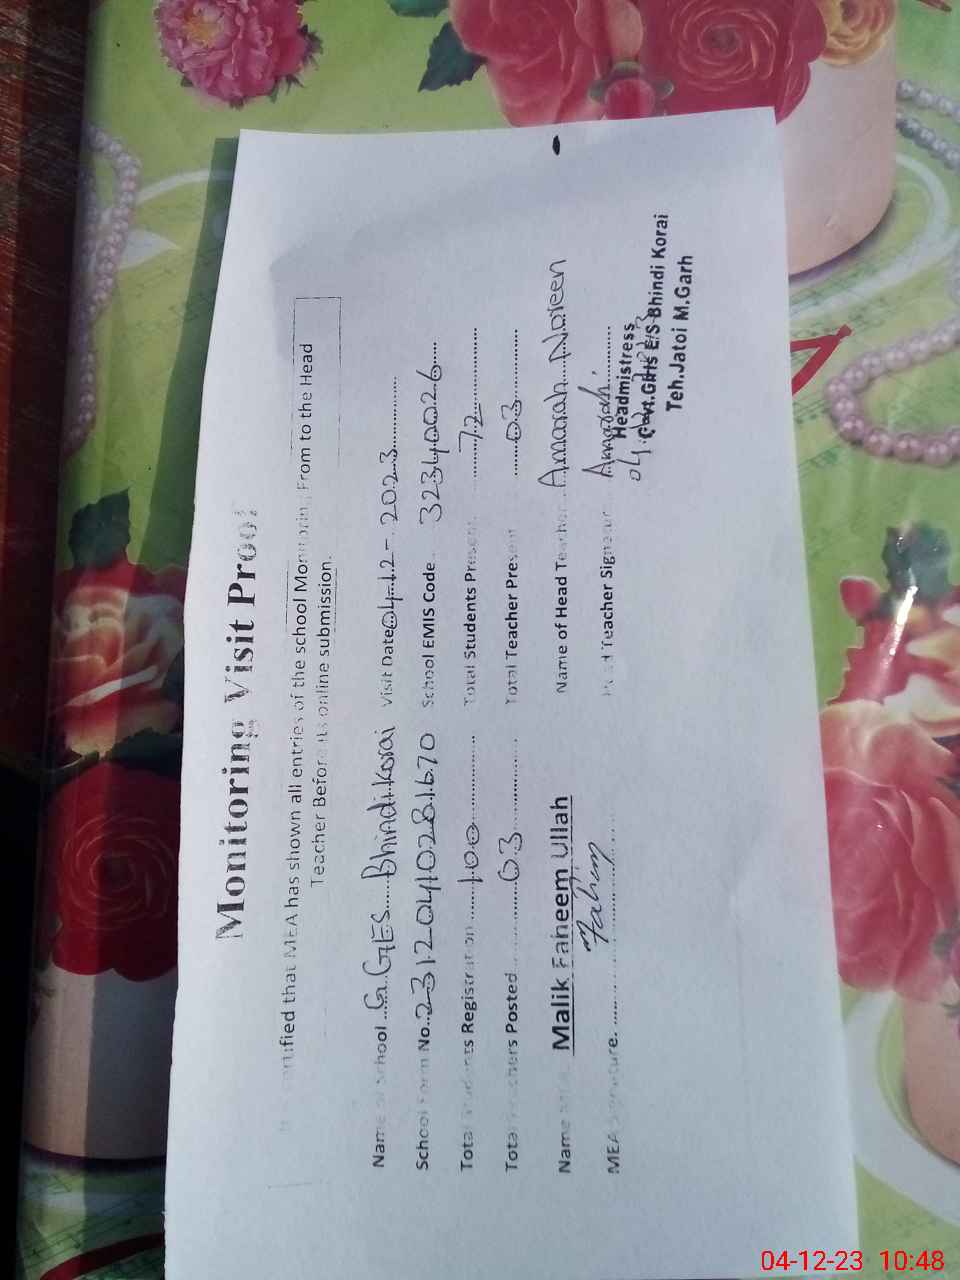 Monitoring Visit Proof
certified that MEA has shown all entries of the school Monitoring From to the Head
Teacher Before its online submission.
Name of school ...G.GES.....Bhindi Korai Visit Date 04.12-2023
School Form No..23120410281670 School EMIS Code 32340026
Total Students Registration .......100 Total Students Present 72
Total Teachers Posted 03 Total Teacher Present 03
Name Malik Faheem Ullah Name of Head Teacher Amarah Noreen
MEA Signature. Fahim Head Teacher Signature Amarah
Headmistress
04
Govt. E/S Bhindi Korai
Teh.Jatoi M.Garh
04-12-23 10:48